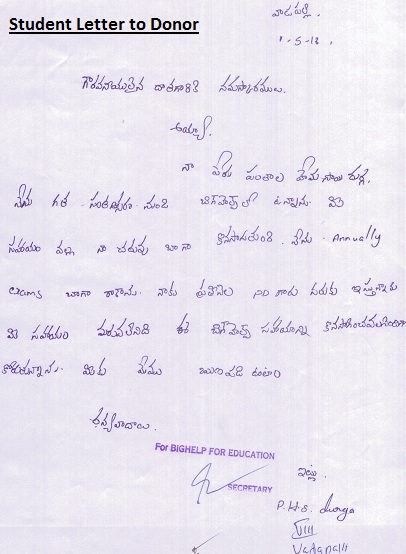 Student Letter to Donor
వాడపల్లి.
1-5-13
గౌరవనీయులైన దాతగారికి నమస్కారములు.
అయ్యా,
నా పేరు పంతాల హేమ సాయి దుర్గ.
నేను గత సంవత్సరం నుండి బిగ్‌హెల్ప్ లో ఉన్నాను. మీ
సహాయం వల్ల నా చదువు బాగా కొనసాగుతుంది. నేను Annually
exams బాగా రాశాను. నాకు ప్రతినెల గారు వరకు ఇస్తున్నారు
మీ సహాయం మరువలేనిది ఈ బిగ్‌హెల్ప్ సహాయాన్ని కొనసాగించవలసిందిగా
కోరుతున్నాను. మీకు మేము ఋణపడి ఉంటాం
ధన్యవాదాలు.
For BIGHELP FOR EDUCATION
SECRETARY
ఇట్లు
P.H.S. durga
VIII
Vadapalli